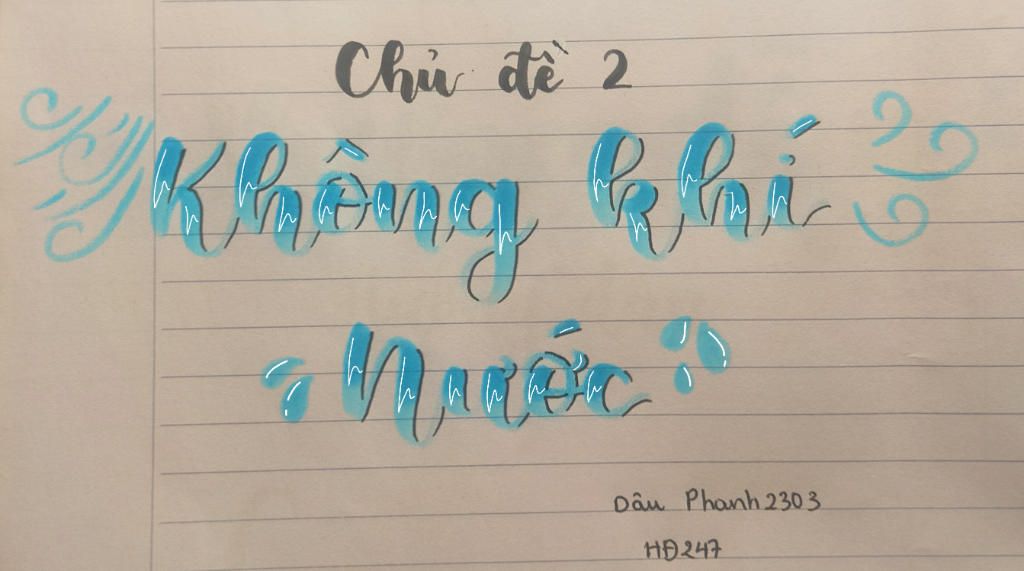 Chủ đề 2
Không khí
Nước
Dâu Phanh2303
HĐ247